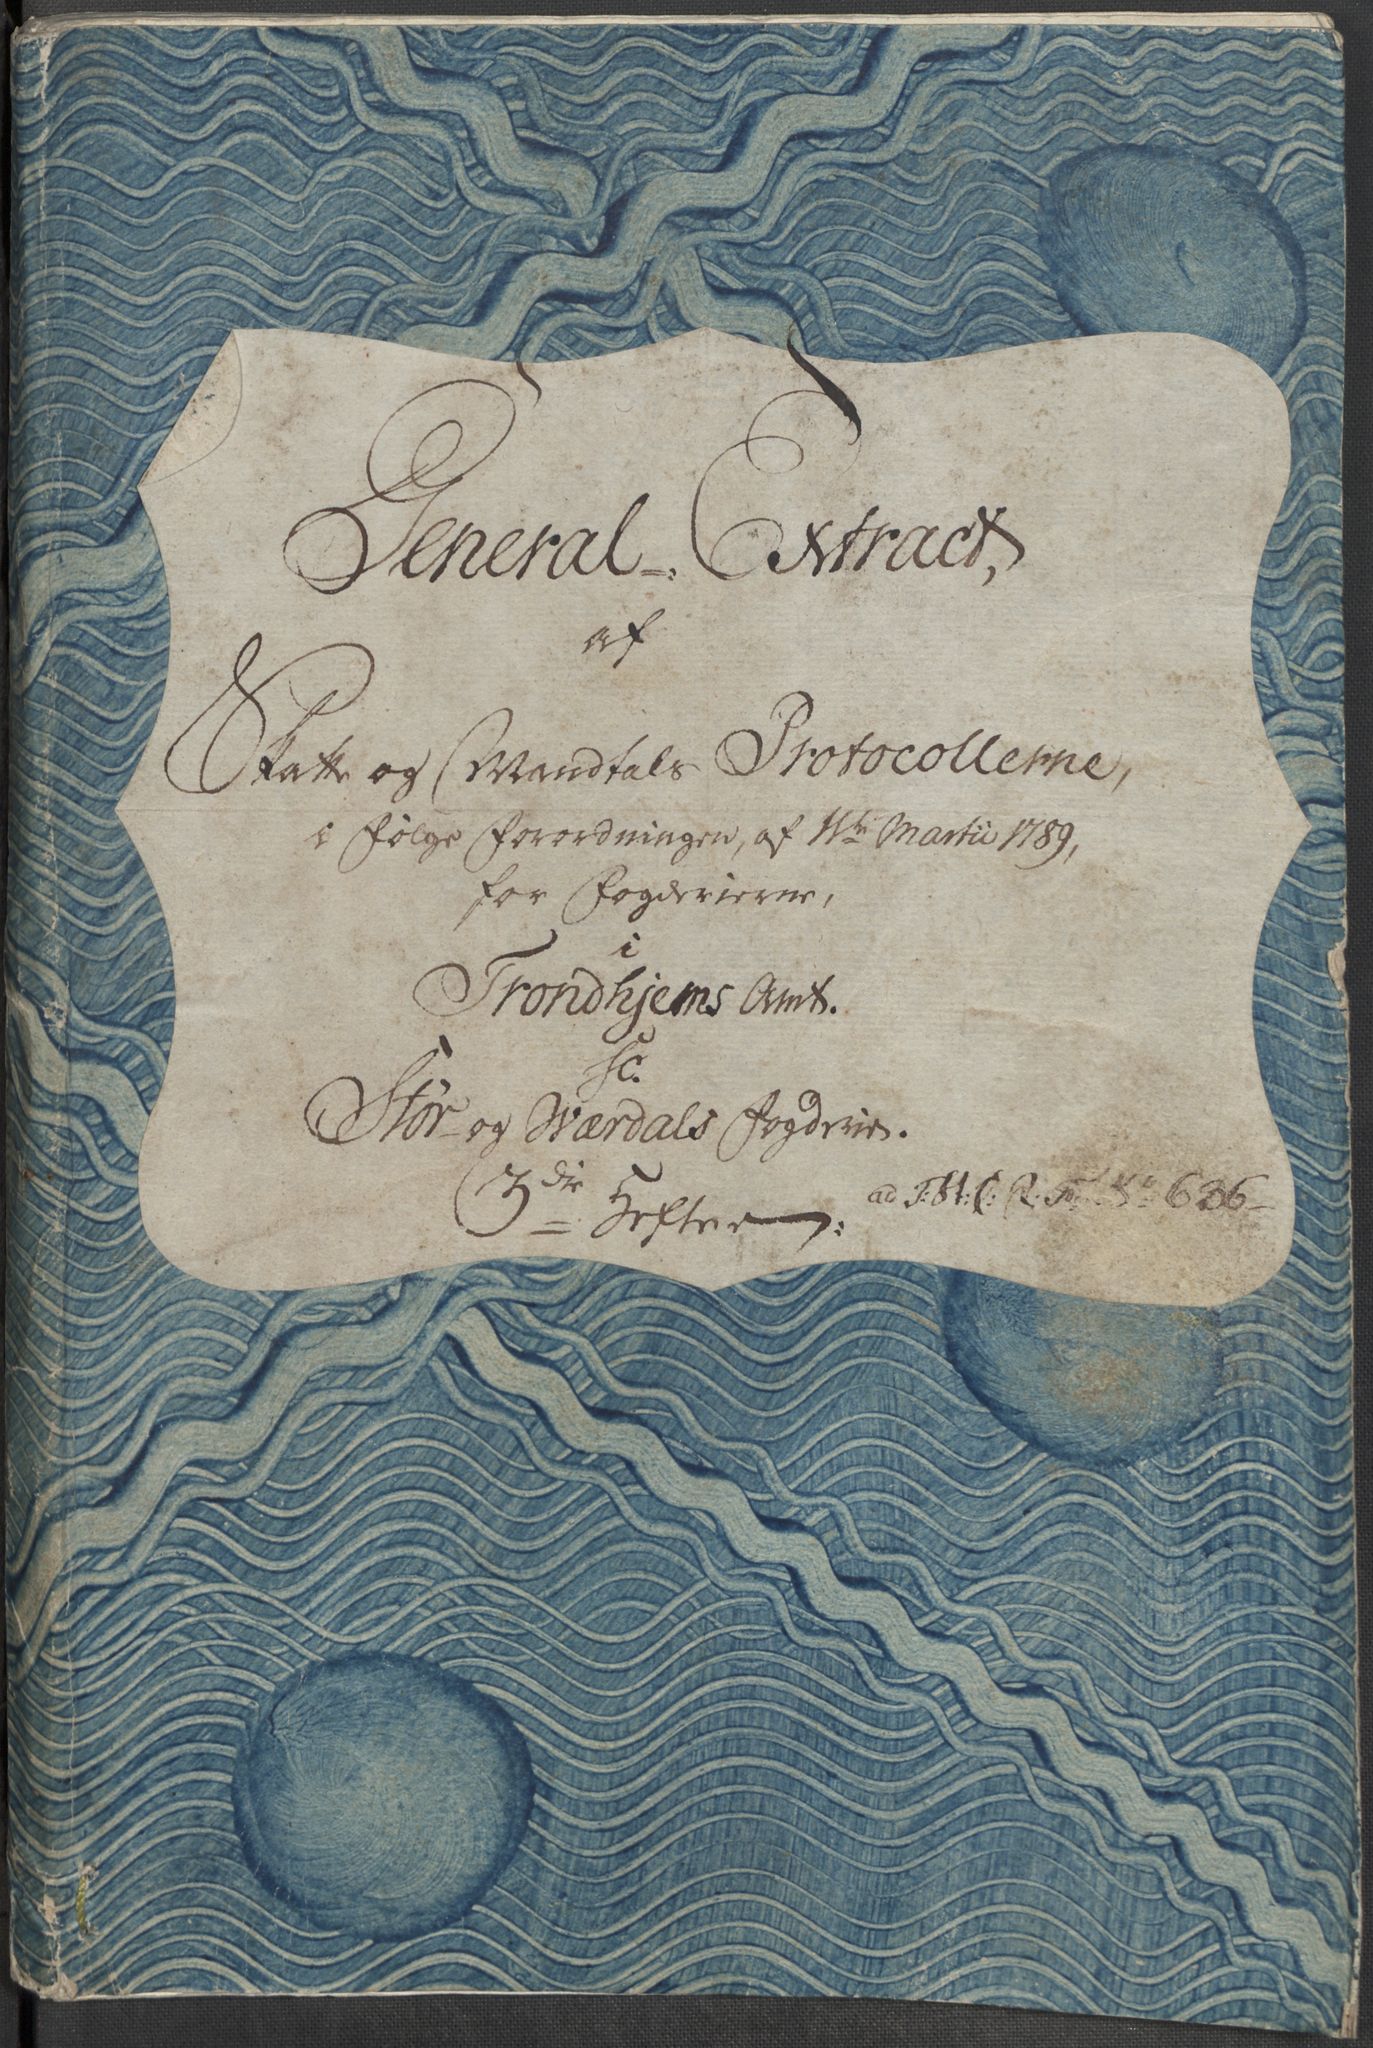 General-Extract,
af
Skatte og Mandtals Protocollerne,
i følge Forordningen, af 11te Martii 1789,
for Fogderierne,
i
Trondhjems Amt.
sc.
Stør- og Værdals Fogderie.
3die Hefte
ad T: H: C: R. No 636